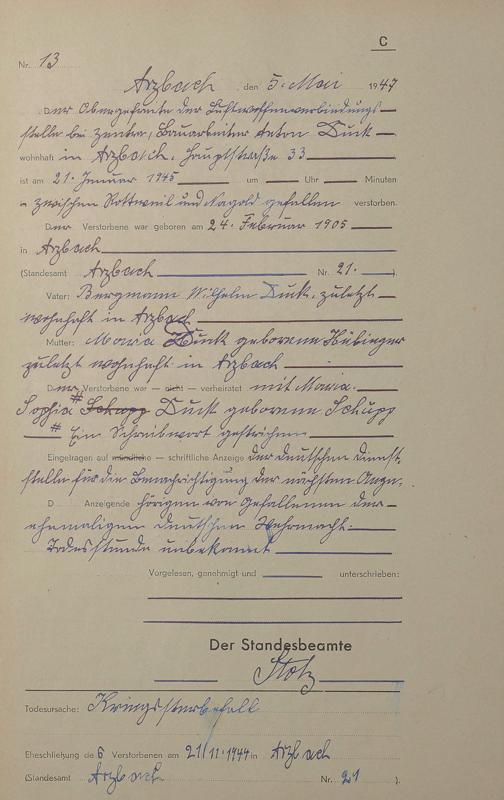 C
Nr. 13
Arzbach, den 5. Mai 1947
Der Obergefreite der Luftwaffenverbindungs-
stelle bei Zentra, Bauarbeiter Anton Duck
wohnhaft in Arzbach, Hauptstraße 33
ist am 21. Januar 1945 um Uhr Minuten
in zwischen Rottweil und Nagold gefallen verstorben.
Der Verstorbene war geboren am 24. Februar 1905
in Arzbach
(Standesamt Arzbach Nr. 21. ).
Vater: Bergmann Wilhelm Duck, zuletzt
wohnhaft in Arzbach
Mutter: Maria Duck geborene Hübinger
zuletzt wohnhaft in Arzbach
Der Verstorbene war — nicht — verheiratet mit Maria
Sophia # Schupp Duck geborene Schupp
# Ein Schreibwort gestrichen
Eingetragen auf mündliche — schriftliche Anzeige der deutschen Dienst-
stelle für die Benachrichtigung der nächsten Ange-
D Anzeigende hörigen von Gefallenen der
ehemaligen deutschen Wehrmacht.
Todesstunde unbekannt
Vorgelesen, genehmigt und unterschrieben:
Der Standesbeamte
Stotz
Todesursache: Kriegssterbefall
Eheschließung des Verstorbenen am 21/11.1944 in Arzbach
(Standesamt Arzbach Nr. 21 ).